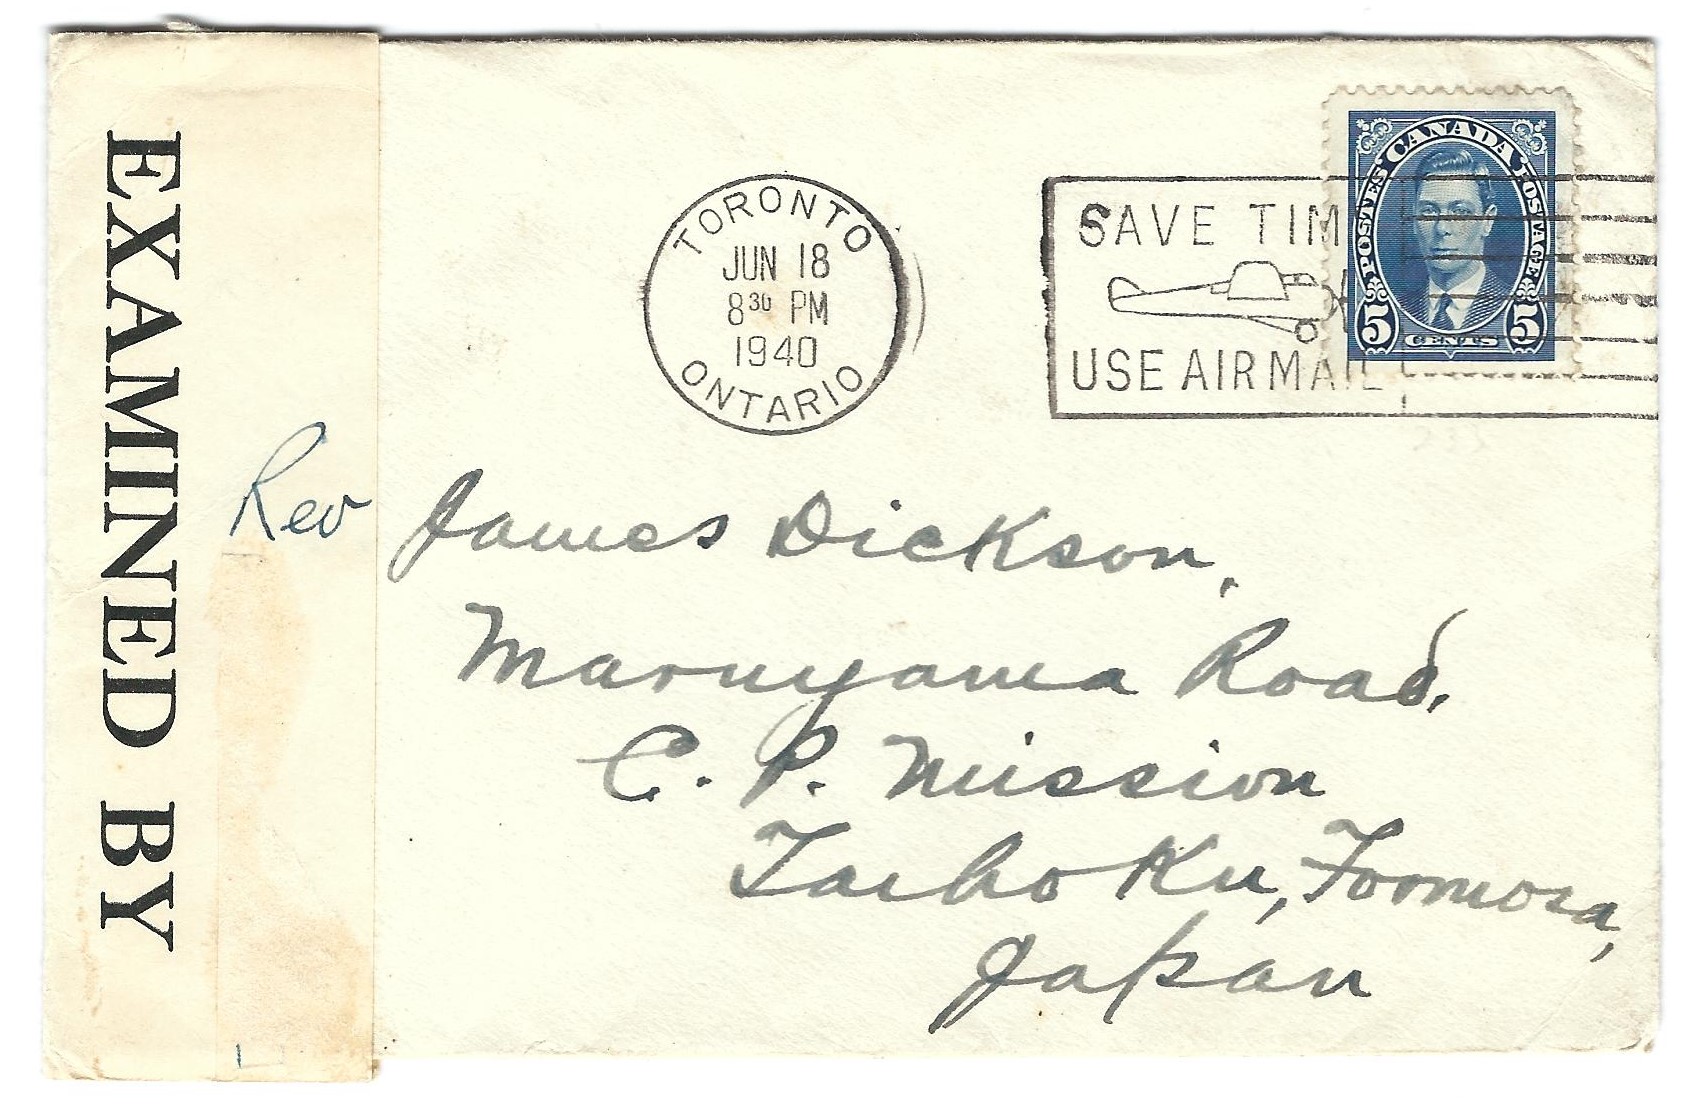 EXAMINED BY
TORONTO
JUN 18
8 30 PM
1940
ONTARIO
SAVE TIM
USE AIR MAIL
POSTES CANADA POSTAGE
5 CENTS 5
Rev James Dickson,
Maruyama Road,
C. P. Mission
Taihoku, Formosa,
Japan